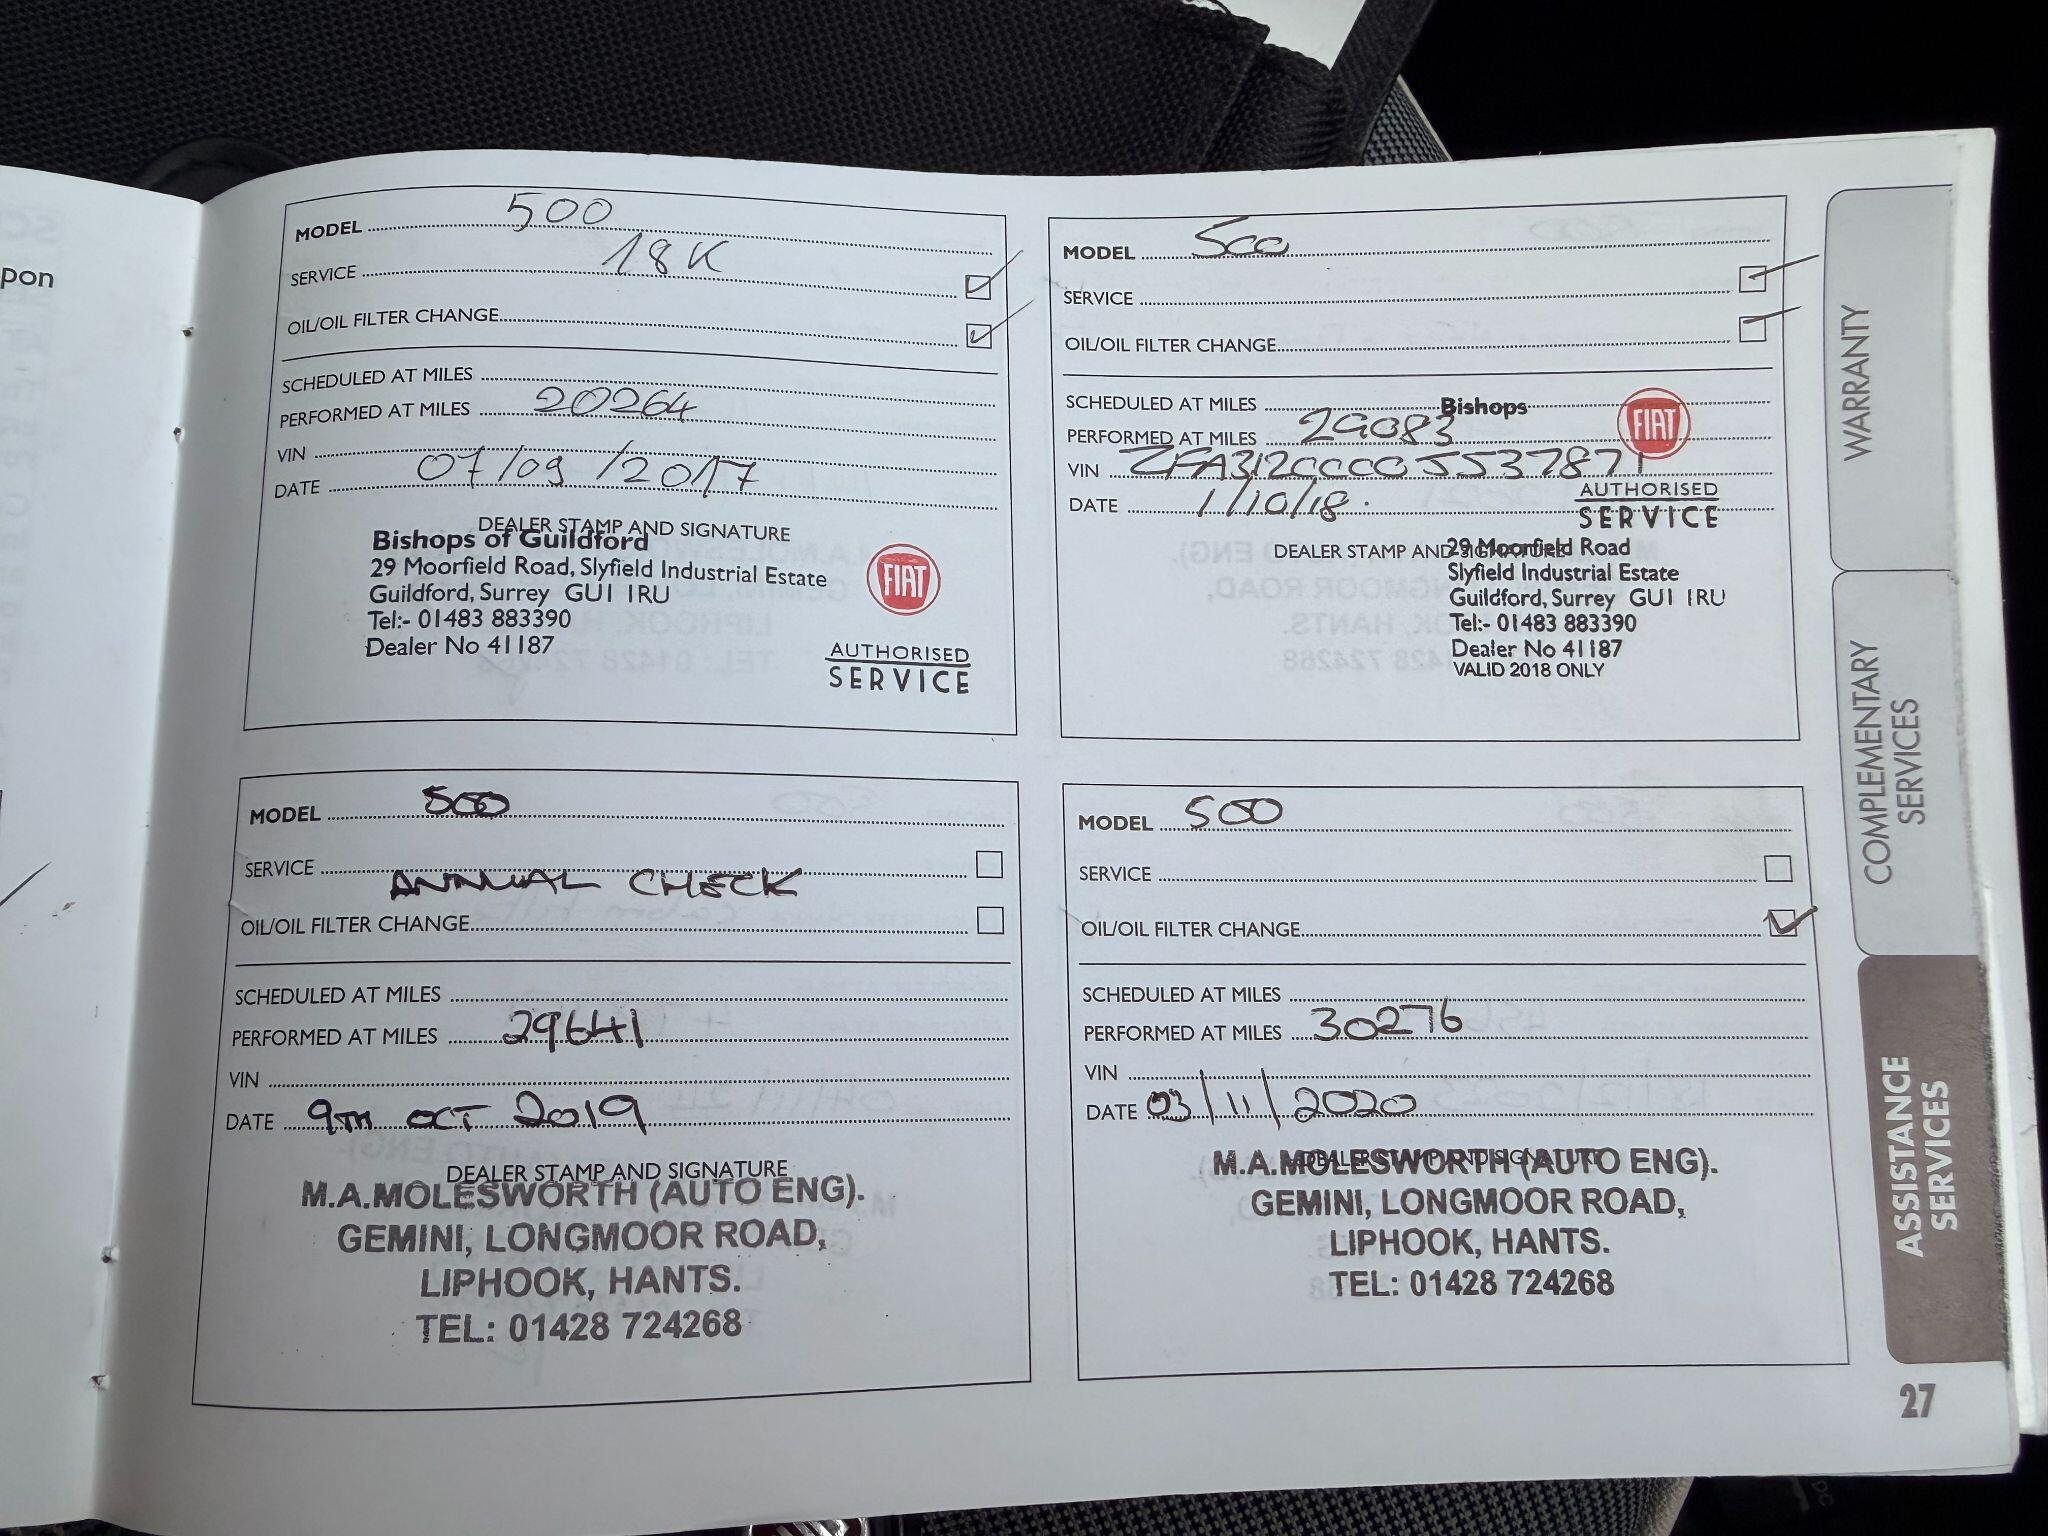 pon
MODEL 500
SERVICE 18K
OIL/OIL FILTER CHANGE
SCHEDULED AT MILES
PERFORMED AT MILES 20264
VIN
DATE 07/09/2017
DEALER STAMP AND SIGNATURE
Bishops of Guildford
29 Moorfield Road, Slyfield Industrial Estate
Guildford, Surrey GU1 1RU
Tel:- 01483 883390
Dealer No 41187
FIAT
AUTHORISED
SERVICE
MODEL 500
SERVICE
OIL/OIL FILTER CHANGE
SCHEDULED AT MILES
PERFORMED AT MILES 29083
VIN ZFA3120000J537871
DATE 1/10/18.
DEALER STAMP AND SIGNATURE
Bishops
FIAT
AUTHORISED
SERVICE
29 Moorfield Road
Slyfield Industrial Estate
Guildford, Surrey GU1 1RU
Tel:- 01483 883390
Dealer No 41187
VALID 2018 ONLY
MODEL 500
SERVICE ANNUAL CHECK
OIL/OIL FILTER CHANGE
SCHEDULED AT MILES
PERFORMED AT MILES 29641
VIN
DATE 9TH OCT 2019
DEALER STAMP AND SIGNATURE
M.A.MOLESWORTH (AUTO ENG).
GEMINI, LONGMOOR ROAD,
LIPHOOK, HANTS.
TEL: 01428 724268
MODEL 500
SERVICE
OIL/OIL FILTER CHANGE
SCHEDULED AT MILES
PERFORMED AT MILES 30276
VIN
DATE 03/11/2020
DEALER STAMP AND SIGNATURE
M.A.MOLESWORTH (AUTO ENG).
GEMINI, LONGMOOR ROAD,
LIPHOOK, HANTS.
TEL: 01428 724268
WARRANTY
COMPLEMENTARY
SERVICES
ASSISTANCE
SERVICES
27